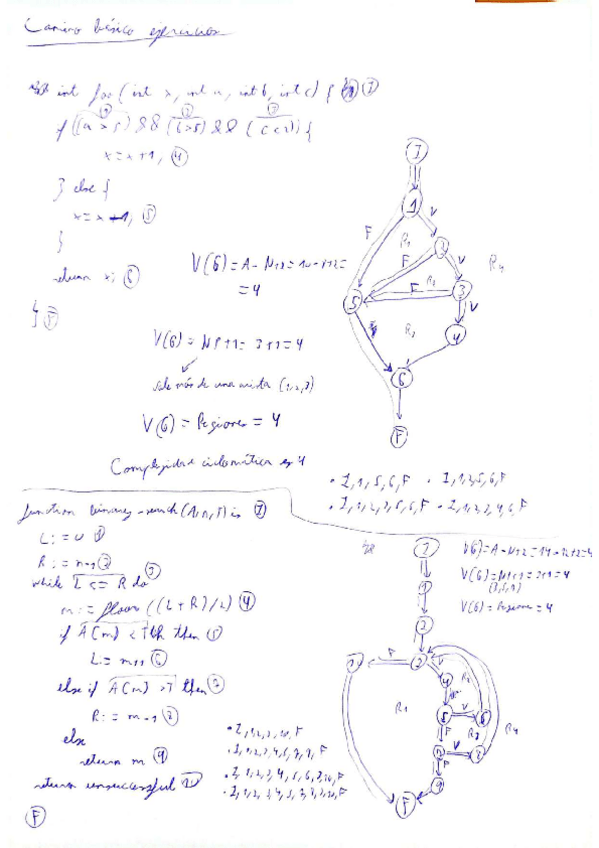 Camino básico ejercicios
int foo (int x, int a, int b, int c) { I
if ((a > 5) && (b > 5) && (c < 2)) {
1 2 3
x = x + 1; 4
} else {
x = x - 1; 5
}
return x; 6
} F
V(G) = A - N + 2 =
= 4
V(G) = NP + 1 = 3 + 1 = 4
sale más de una arista (1, 2, 3)
V(G) = Regiones = 4
Complejidad ciclomática es 4
I
1
F V
R1 2
F V
R2 R4
5 F 3
V
R3 4
6
F
• I, 1, 5, 6, F • I, 1, 2, 5, 6, F
• I, 1, 2, 3, 5, 6, F • I, 1, 2, 3, 4, 6, F
function binary-search (A, n, T) is I
L := 0 1
R := n-1 2
while L <= R do 3
m := floor ((L + R) / 2) 4
if A(m) < T then 5
L = m+1 6
else if A(m) > T then 7
R := m - 1 8
else
return m 9
return unsuccessful
F
V(G) = A - N + 2 = 14 - 12 + 2 = 4
V(G) = NP + 1 = 3 + 1 = 4
V(G) = Regiones = 4
I
1
2
F
V
4
R1
5 V 6
R4
F
V 8
F
9
F
• I, 1, 2, 3, 10, F
• I, 1, 2, 3, 4, 5, 7, 9, F
• I, 1, 2, 3, 4, 5, 6, 3, 10, F
• I, 1, 2, 3, 4, 5, 7, 8, 3, 10, F